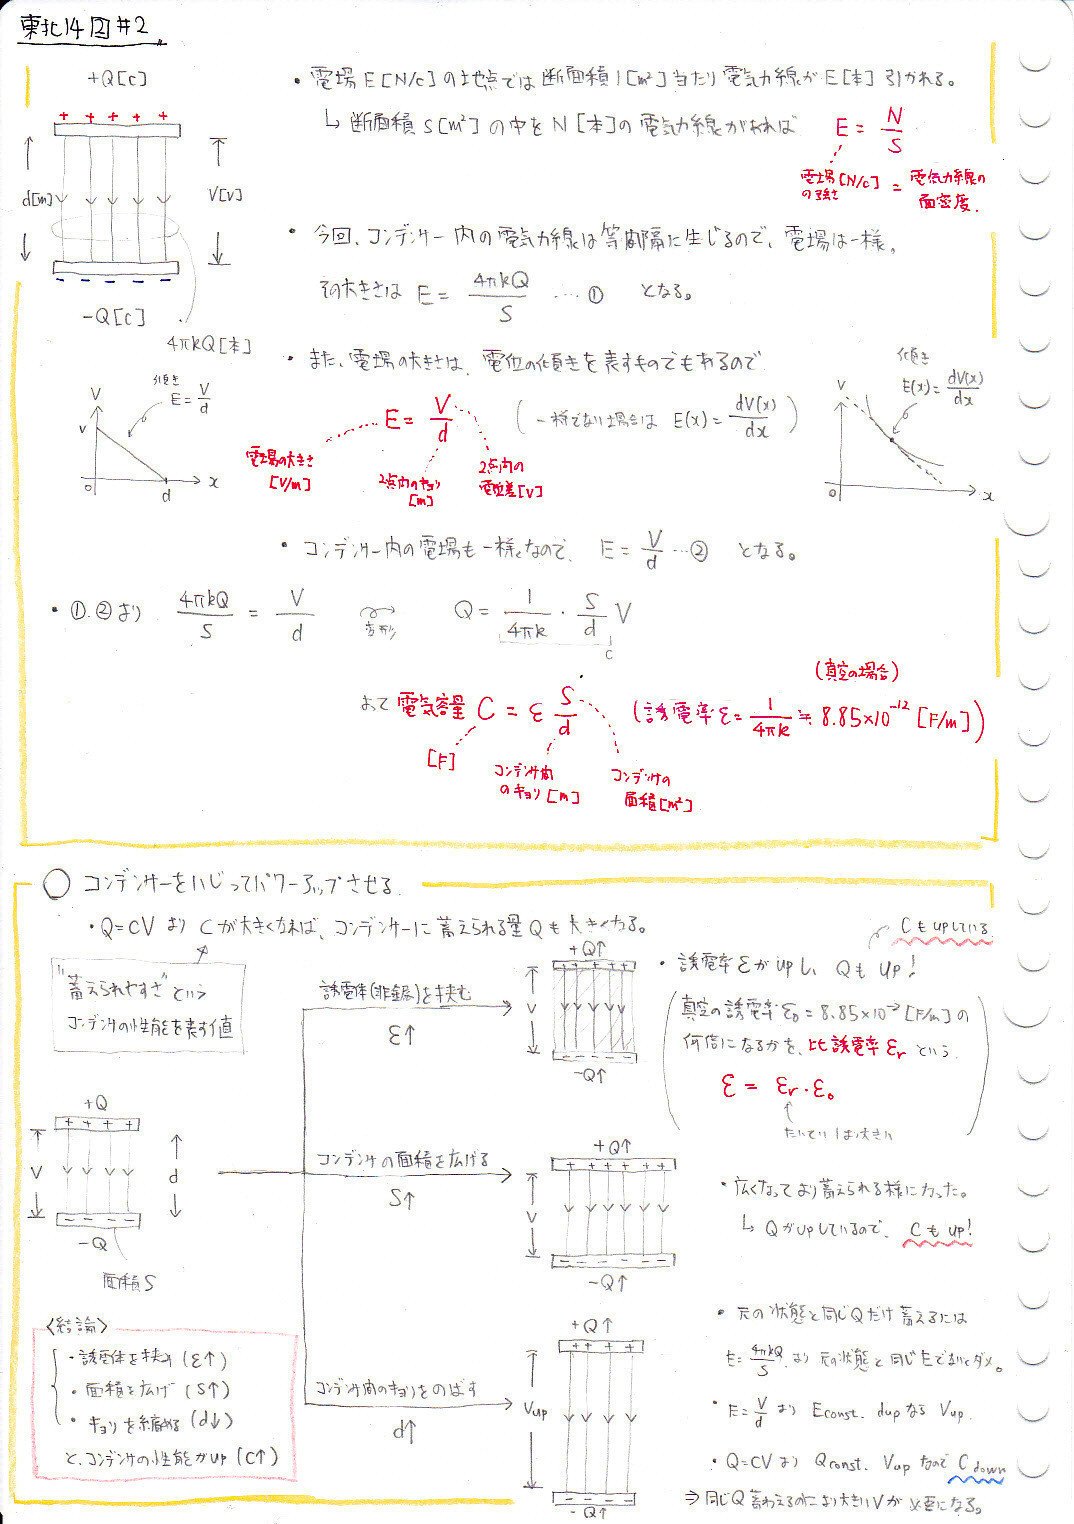 東北14回#2
+Q[C]
+ + + + +
d[m]
V[V]
- - - - -
-Q[C]
4πkQ[本]
・電場E[N/C]の地点では断面積1[m²]当たり電気力線がE[本]引かれる。
↳断面積S[m²]の中をN[本]の電気力線があれば
E = N/S
電場[N/C]の強さ = 電気力線の面密度.
・今回、コンデンサー内の電気力線は等間隔に生じるので、電場は一様。
その大きさは E = 4πkQ/S …① となる。
・また、電場の大きさは、電位の傾きを表すものでもあるので
V
V
傾き
E=V/d
0
d
x
E = V/d
電場の大きさ[V/m]
2点間のキョリ[m]
2点間の電位差[V]
(一様でない場合は E(x)=dV(x)/dx)
傾き
E(x)=dV(x)/dx
V
0
x
・コンデンサー内の電場も一様なので、 E=V/d …② となる。
・①.②より 4πkQ/S = V/d 変形 Q = 1/4πk・S/d V
C
よって 電気容量 C = ε S/d (誘電率 ε=1/4πk≒8.85×10⁻¹² [F/m])
(真空の場合)
[F]
コンデンサ間のキョリ[m]
コンデンサの面積[m²]
○ コンデンサーをいじってパワーアップさせる.
・Q=CV より Cが大きくなれば、コンデンサーに蓄えられる量Qも大きくなる。
"蓄えられやすさ"という
コンデンサの性能を表す値
+Q
+ + + +
V
d
- - - -
-Q
面積S
誘電体(非金属)を挟む
ε↑
+Q↑
V
-Q↑
・誘電率εがupし、Qも up!
Cもupしている
真空の誘電率ε₀=8.85×10⁻¹[F/m]の
何倍になるかを、比誘電率εrという.
ε = εr・ε₀
たいてい1より大きい
コンデンサの面積を広げる
S↑
+Q↑
V
-Q↑
・広くなってより蓄えられる様になった。
↳Qがupしているので、Cもup!
コンデンサ間のキョリをのばす
d↑
+Q↑
Vup
-Q↑
・元の状態と同じQだけ蓄えるには
E=4πkQ/S より 元の状態と同じEでないとダメ。
・E=V/d より Econst. dupなら Vup.
・Q=CV より Qconst. Vup なので Cdown
⇒同じQ蓄わえるのにより大きいVが必要になる。
〈結論〉
・誘電体を挟み (ε↑)
・面積を広げ (S↑)
・キョリを縮める (d↓)
と、コンデンサの性能がup (C↑)